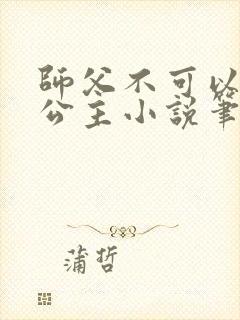 師父不可以
公主小說筆
蒲哲